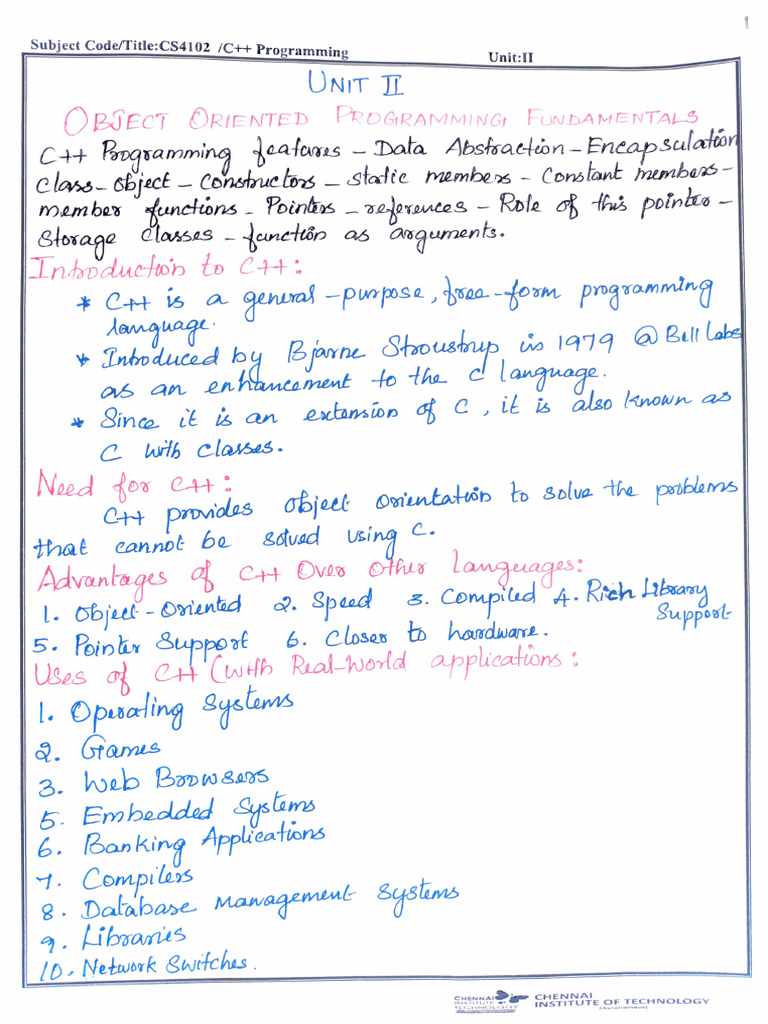 1
Subject Code/Title:CS4102 /C++ Programming Unit:II
UNIT II
OBJECT ORIENTED PROGRAMMING FUNDAMENTALS
C++ Programming features - Data Abstraction - Encapsulation
class - object - constructors - static members - Constant members -
member functions - Pointers - references - Role of this pointer -
Storage classes - function as arguments.
Introduction to C++:
* C++ is a general-purpose, free-form programming
language.
* Introduced by Bjarne Stroustrup in 1979 @ Bell Labs
as an enhancement to the C language.
* Since it is an extension of C, it is also known as
C with classes.
Need for C++:
C++ provides object orientation to solve the problems
that cannot be solved using C.
Advantages of C++ Over Other languages:
1. Object-Oriented 2. Speed 3. Compiled 4. Rich Library
Support
5. Pointer Support 6. Closer to hardware.
Uses of C++ (with Real-World applications:
1. Operating Systems
2. Games
3. Web Browsers
5. Embedded Systems
6. Banking Applications
7. Compilers
8. Database Management Systems
9. Libraries
10. Network Switches.
CHENNAI
INSTITUTE OF
TECHNOLOGY
CHENNAI
INSTITUTE OF TECHNOLOGY
(Autonomous)